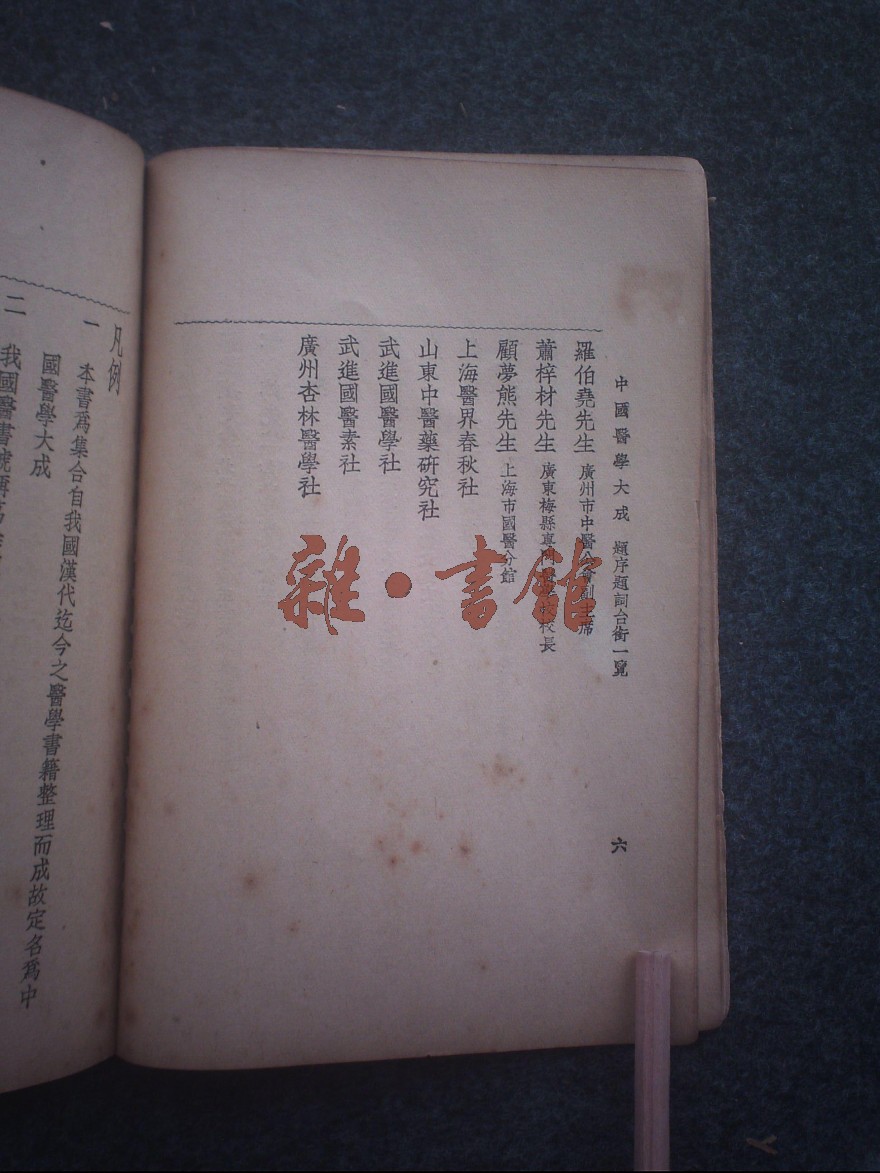 中國醫學大成 題序題詞台銜一覽 六
羅伯堯先生 廣州市中醫公會副主席
蕭梓材先生 廣東梅縣 校長
顧夢熊先生 上海市國醫分館
上海醫界春秋社
山東中醫藥研究社
武進國醫學社
武進國醫素社
廣州杏林醫學社
凡例
一 本書爲集合自我國漢代迄今之醫學書籍整理而成故定名爲中
國醫學大成
二 我國醫書
雜·書館